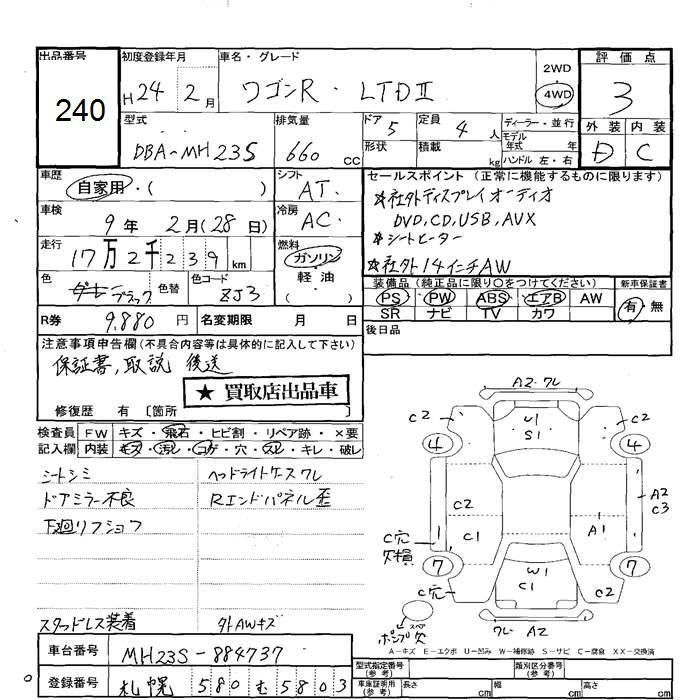 出品番号
240
初度登録年月
H24 2月
車名・グレード
ワゴンR LTDⅡ
2WD
4WD
評価点
3
外装 内装
D C
型式
DBA-MH23S
排気量
660 cc
ドア 5
定員 4 人
ディーラー・並行
モデル年式 年式
形状
積載 kg
ハンドル 左・右
車歴
自家用・( )
シフト
AT.
車検
9年 2月(28日)
冷房
AC.
走行
17万2千239km
燃料
ガソリン
軽油
( )
色
ブラック
色替
色コード
ZJ3
セールスポイント (正常に機能するものに限ります)
*社外ディスプレイオーディオ
DVD,CD,USB,AUX
*シートヒーター
*社外14インチAW
装備品 (純正品に限り○をつけてください)
PS PW ABS エアB AW
SR ナビ TV カワ
新車保証書
有・無
後日品
R券 9.880円
名変期限 月 日
注意事項申告欄(不具合内容等は具体的に記入して下さい)
保証書,取説 後送
★ 買取店出品車
修復歴 有 〔箇所
検査員記入欄
FW キズ・飛石・ヒビ割・リペア跡・×要
内装 キズ・汚レ・コゲ・穴・スレ・キレ・破レ
シートシミ
ドアミラー不良
下廻リフショク
ヘッドライトケースワレ
Rエンドパネル歪
スタッドレス装着
外AWキズ
A2 ワレ
C2
U1
S1
C2
4
4
C2
A2
C3
C1
A1
C穴
欠損
7
7
W1
C1
C穴
C2
スペア
ポンプ欠
ワレ A2
A-キズ E-エクボ U-凹み W-補修跡 S-サビ C-腐食 XX-交換済
車台番号
MH23S-884737
登録番号
札幌 580 む 5803
型式指定番号(参考)
類別区分番号(参考)
車庫証明(参考) 長さ cm 幅 cm 高さ cm